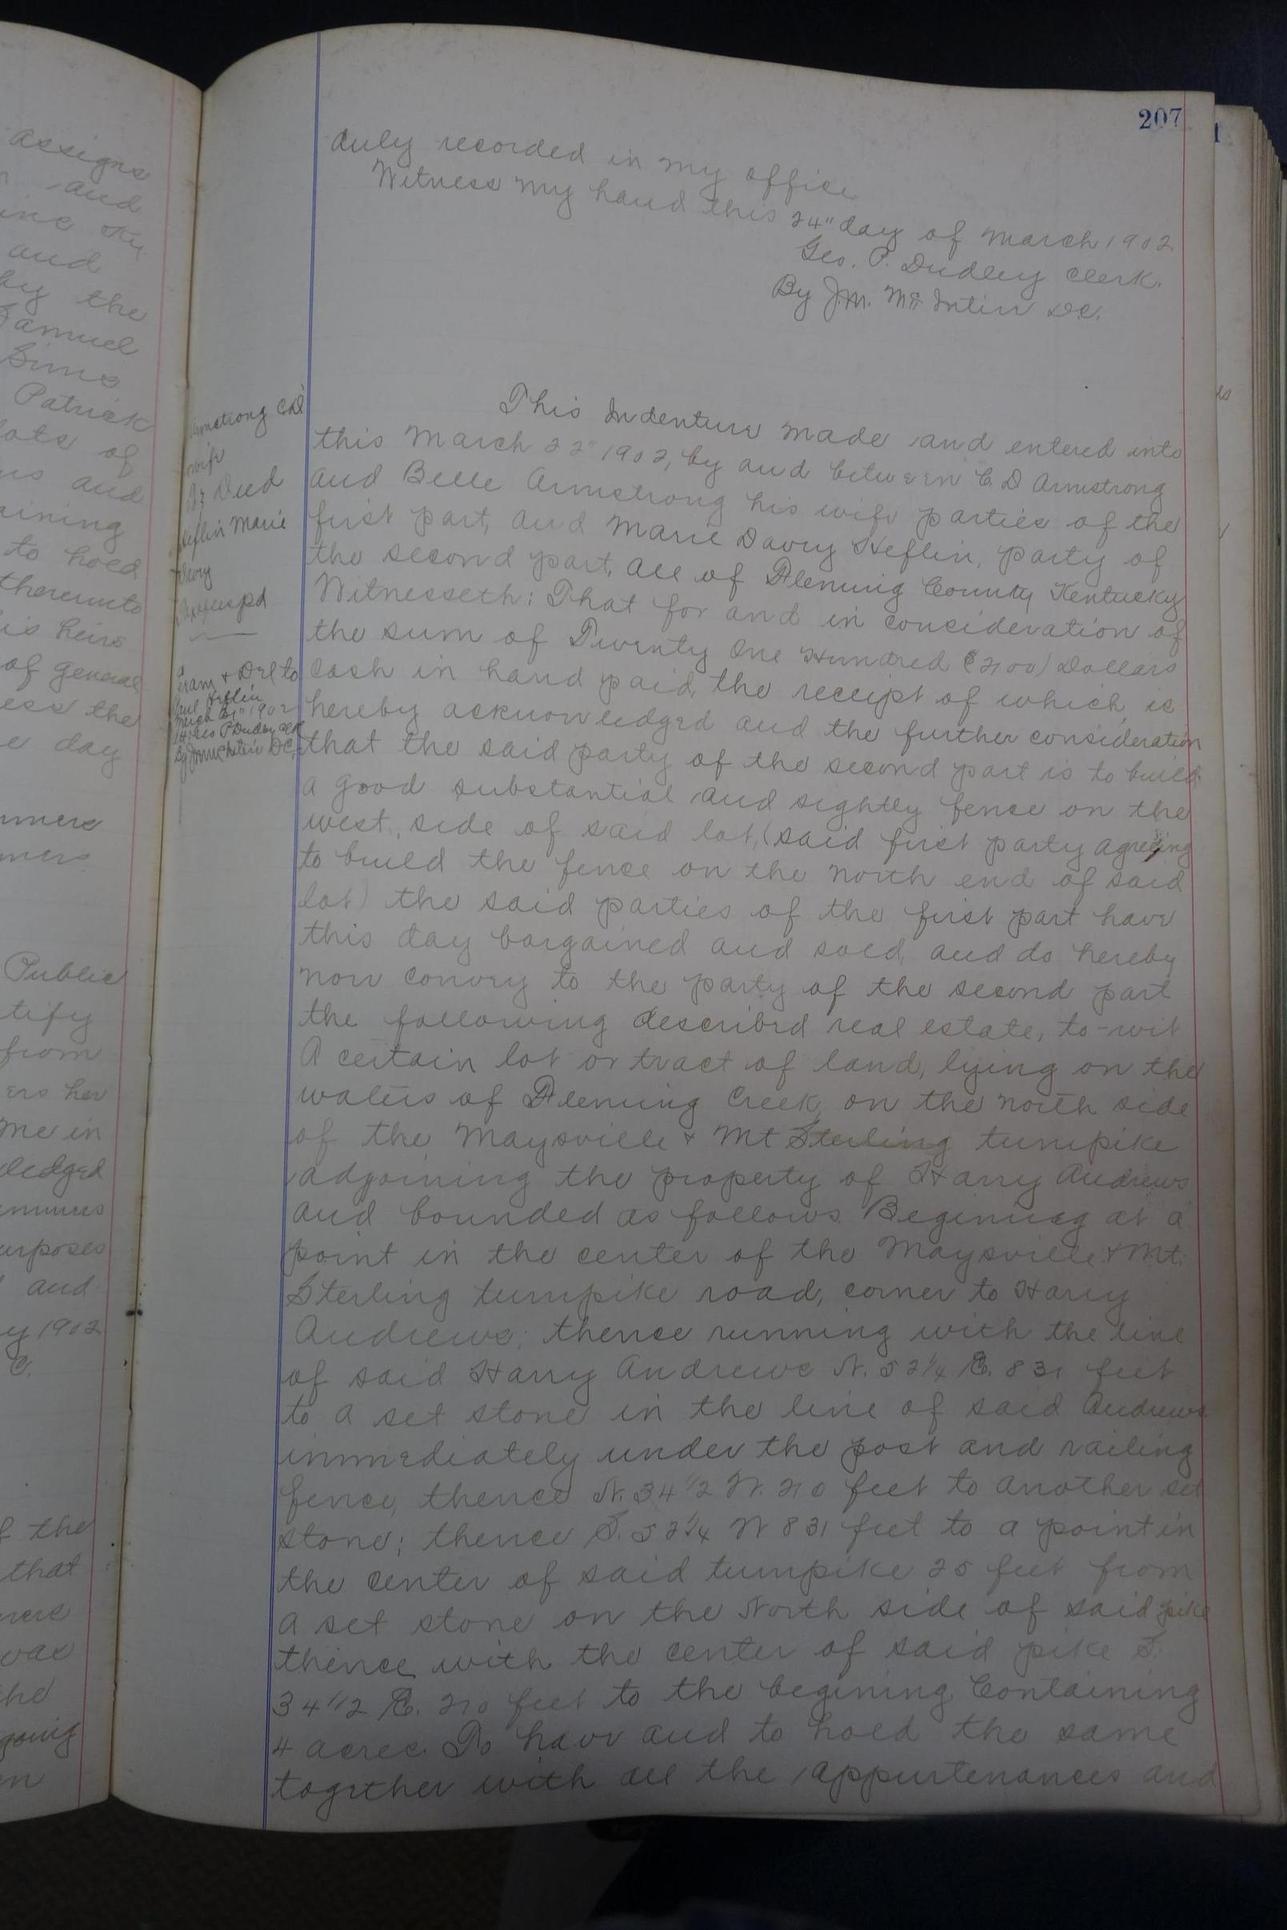 assigns
and
and
by the
Samuel
Sims
Patrick
lots of
and
to hold
thereunto
his heirs
of general
the
day
Public
from
her
me in
purposes
and
1902
the
that
207
duly recorded in my office
Witness my hand this 24" day of March 1902
Geo. P. Dudley Clerk.
By J.M. McIntire D.C.
Armstrong C.D.
wife
To } Deed
Heflin Marie
Davey
Tax .50 pd
Exam & Del to
Paul Heflin
March 1902
Geo P Dudley Clk
By Jm McIntire D.C.
This Indenture made and entered into
this March 22" 1902, by and between C. D Armstrong
and Belle Armstrong his wife parties of the
first part, and Marie Davey Heflin, party of
the second part, all of Fleming County Kentucky
Witnesseth: That for and in consideration of
the sum of Twenty One Hundred ($2100) Dollars
cash in hand paid, the receipt of which is
hereby acknowledged and the further consideration
that the said party of the second part is to build
a good substantial and sightly fence on the
west, side of said lot, (said first party agreeing
to build the fence on the north end of said
lot) the said parties of the first part have
this day bargained and sold, and do hereby
now convey to the party of the second part
the following described real estate, to-wit
A certain lot or tract of land, lying on the
waters of Fleming Creek, on the north side
of the Maysville & Mt Sterling turnpike
adjoining the property of Harry Andrews
and bounded as follows. Begining at a
point in the center of the Maysville & Mt.
Sterling turnpike road, corner to Harry
Andrews; thence running with the line
of said Harry Andrews N. 52¼ E. 831 feet
to a set stone in the line of said Andrews
immediately under the post and railing
fence, thence N. 34 1/2 W. 210 feet to another set
stone; thence S. 52¼ W 831 feet to a point in
the center of said turnpike 25 feet from
a set stone on the North side of said pike
thence with the center of said pike S.
34 1/2 E. 210 feet to the begining Containing
4 acres. To have and to hold the same
together with all the appurtenances and